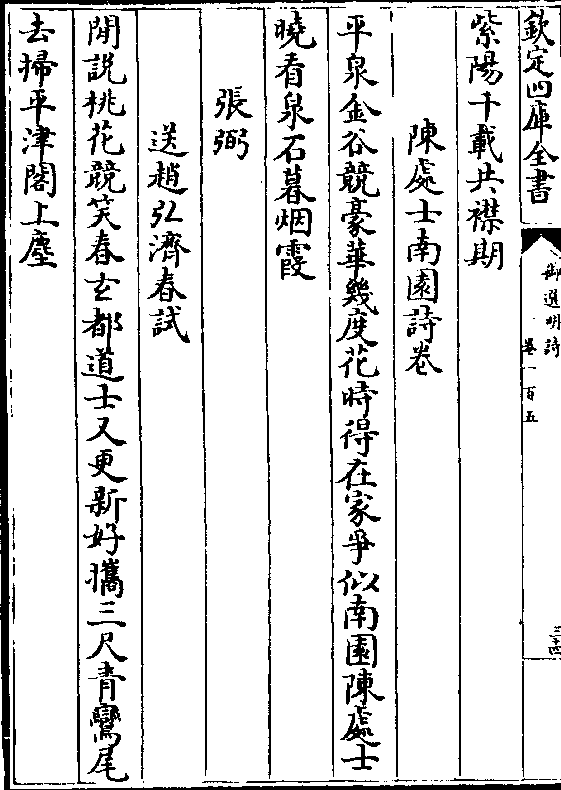 欽定四庫全書
御選明詩
卷一百五
三十四
紫陽千載共襟期
陳處士南園詩卷
平泉金谷競豪華幾度花時得在家爭似南園陳處士
曉看泉石暮烟霞
張弼
送趙弘濟春試
聞說桃花競笑春玄都道士又更新好攜三尺青鸞尾
去掃平津閣上塵